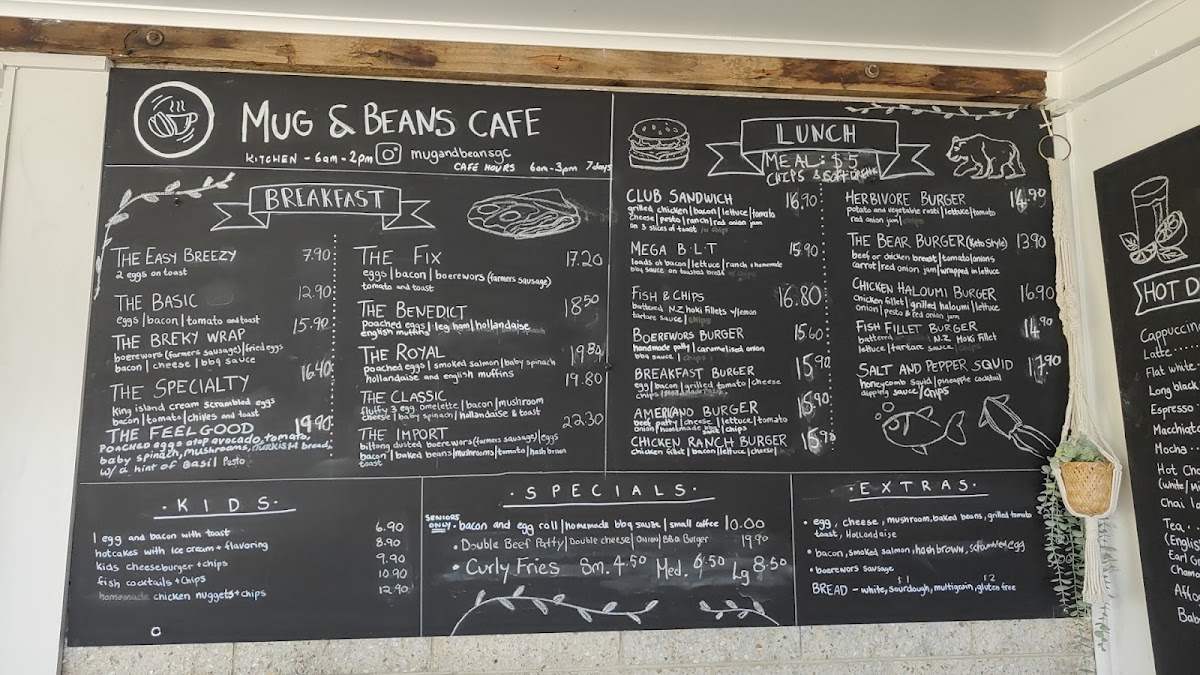 MUG & BEANS CAFE
KITCHEN - 6am - 2pm mugandbeansgc
CAFE HOURS 6am-3pm 7days
BREAKFAST
THE EASY BREEZY 7.90
2 eggs on toast
THE BASIC 12.90
eggs | bacon | tomato and toast
THE BREKY WRAP 15.90
boerewors (farmers sausage) | fried eggs
bacon | cheese | bbq sauce
THE SPECIALTY 16.40
King island cream scrambled eggs
bacon | tomato | chives and toast
THE FEELGOOD 19.90
POACHED eggs atop avocado, tomato,
baby spinach, mushrooms, TURKISH bread
w/ a hint of Basil Pesto
THE FIX 17.20
eggs | bacon | boerewors (farmers sausage)
tomato and toast
THE BENEDICT 18.50
poached eggs | leg ham | hollandaise
english muffins
THE ROYAL 19.80
poached eggs | smoked salmon | baby spinach
hollandaise and english muffins
THE CLASSIC 19.80
fluffy 3 egg omelette | bacon | mushroom
cheese | baby spinach | hollandaise & toast
THE IMPORT 22.30
biltong dusted boerewors (farmers sausage) | eggs
bacon | baked beans | mushrooms | tomato | hash brown
toast
LUNCH
MEAL: $5
CHIPS & SOFT DRINK
CLUB SANDWICH 16.90
grilled chicken | bacon | lettuce | tomato
cheese | pesto | ranch | red onion jam
on 3 slices of toast
MEGA B.L.T 15.90
loads of bacon | lettuce | ranch + homemade
bbq sauce on toasted bread
FISH & CHIPS 16.80
battered N.Z hoki fillets w/lemon
tartare sauce | chips
BOEREWORS BURGER 15.60
handmade patty | caramelised onion
bbq sauce
BREAKFAST BURGER 15.90
egg | bacon | grilled tomato | cheese
AMERICANO BURGER 15.90
beef patty | cheese | lettuce | tomato
onion | homemade chips
CHICKEN RANCH BURGER 15.90
chicken fillet | bacon | lettuce | cheese |
HERBIVORE BURGER 14.90
potato and vegetable rosti | lettuce | tomato
red onion jam |
THE BEAR BURGER (Keto Style) 13.90
beef or chicken breast | tomato | onions
carrot | red onion jam | wrapped in lettuce
CHICKEN HALOUMI BURGER 16.90
chicken fillet | grilled haloumi | lettuce
onion | pesto & red onion jam
FISH FILLET BURGER 14.90
battered N.Z. Hoki Fillet
lettuce | tartare sauce
SALT AND PEPPER SQUID 17.90
honeycomb squid | pineapple cocktail
dipping sauce/chips
· KIDS ·
1 egg and bacon with toast 6.90
hotcakes with ice cream + flavoring 8.90
kids cheeseburger + chips 9.90
fish cocktails + chips 10.90
homemade chicken nuggets + chips 12.90
· SPECIALS ·
SENIORS ONLY · bacon and egg roll | homemade bbq sauce | small coffee 10.00
· Double Beef Patty | Double cheese | Onion | BBQ Burger 19.90
· Curly Fries Sm. 4.50 Med. 6.50 Lg 8.50
· EXTRAS ·
· egg, cheese, mushroom, baked beans, grilled tomato
toast, Hollandaise
· bacon, smoked salmon, hash brown, scrambled egg
· boerewors sausage
BREAD - white, sourdough, multigrain, gluten free
HOT D
Cappuccin
Latte
Flat white
Long black
Espresso
Macchiato
Mocha
Hot Cho
(white/Mi
Chai la
Tea
(English
Earl G
Chamo
Affog
Bab